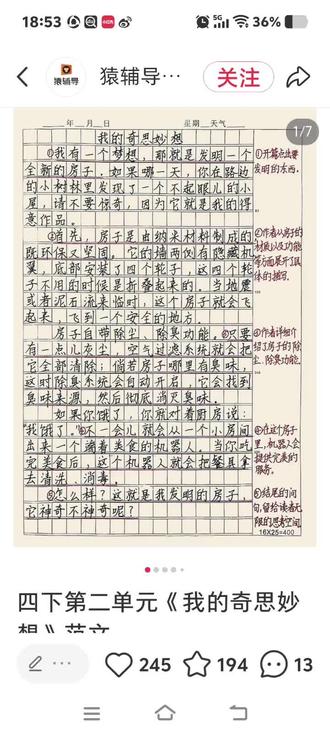 18:53
5G
36%
猿辅导
猿辅导…
关注
1/7
____年__月__日 星期__天气____
我的奇思妙想
①我有一个梦想，那就是发明一个
全新的房子。如果哪一天，你在路边
的小树林里发现了一个不起眼儿的小
屋，请不要惊奇，因为它就是我的得
意作品。
②首先，房子是由纳米材料制成的
既环保又坚固，它的墙两侧有隐藏机
翼，底部安装了四个轮子，这四个轮
子不用的时候是折叠起来的。当地震
或者泥石流来临时，这个房子就会飞
起来，飞到一个安全的地方。
房子自带除尘、除臭功能。③只要
有一点儿灰尘，空气过滤系统就会把
它全部清除；倘若房子哪里有臭味，
这时除臭系统会自动开启，它会找到
臭味来源，然后彻底消灭臭味。
如果你饿了，你就对着厨房说：
“我饿了。”④不一会儿，就会从一个小房间
出来一个端着美食的机器人。当你吃
完美食后，这个机器人就会把餐具拿
去清洗、消毒。
⑤怎么样？这就是我发明的房子，
它神奇不神奇呢？
①开篇点出要
发明的东西。
②作者从房子的
材质以及功能
等方面展开了具
体的描写。
③作者详细介
绍了房子的除
尘、除臭功能。
④在这个房子
里，机器人会
提供完美的
服务。
⑤结尾的问
句，留给读者无
限的思考空间
16X25=400
四下第二单元《我的奇思妙
想》范文
245
194
13